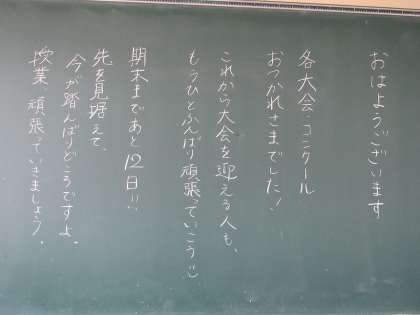 おはようございます
各大会・コンクール
おつかれさまでした!
これから大会を迎える人も、
もうひとふんばり頑張っていこう:)
期末まであと12日!!
先を見据えて、
今が踏んばりどころですよ。
授業、頑張っていきましょう。